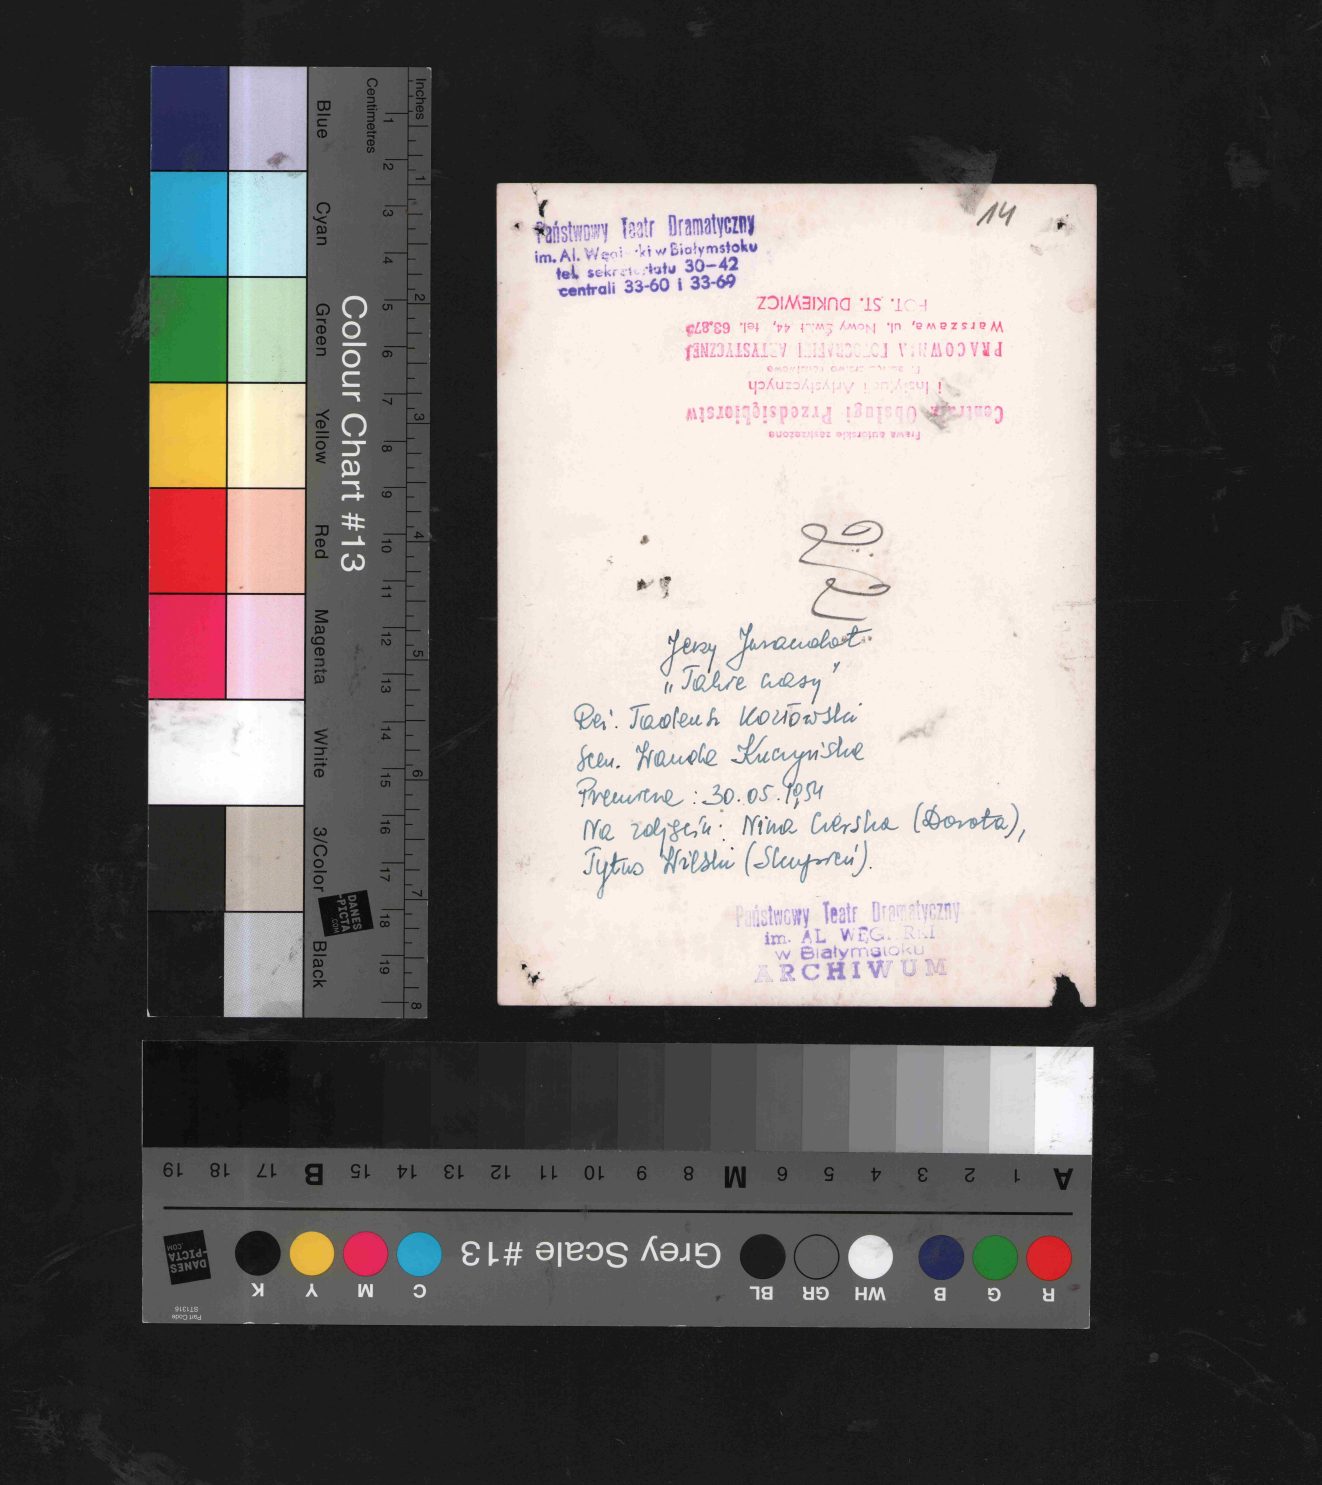 Blue
Cyan
Green
Yellow
Red
Magenta
White
3/Color
Black
Colour Chart #13
Centimetres
1 2 3 4 5 6 7 8 9 10 11 12 13 14 15 16 17 18 19
Inches
1 2 3 4 5 6 7 8
DANES
-PICTA
.COM
14
Państwowy Teatr Dramatyczny
im. Al. w Białymstoku
tel. sekretariatu 30-42
centrali 33-60 i 33-69
Prawa autorskie zastrzeżone
Centrala Obsługi Przedsiębiorstw
i Instytucji Artystycznych
PRACOWNIA FOTOGRAFII ARTYSTYCZNEJ
Warszawa, ul. Nowy Świat 44, tel. 63.875
FOT. ST. DUKIEWICZ
Jerzy Jurandot
„Takie czasy"
Reż. Tadeusz Kozłowski
Scen. Wanda Kuczyńska
Premiera: 30.05.1954
Na zdjęciu: Nina Czerska (Dorota),
Tytus Wilski (Skupień).
Państwowy Teatr Dramatyczny
im. AL WĘGIERKI
w Białymstoku
ARCHIWUM
A 1 2 3 4 5 6 M 8 9 10 11 12 13 14 15 B 17 18 19
R G B WH GR BL
Grey Scale #13
C M Y K
DANES
-PICTA
.COM
Part Code
ST1316